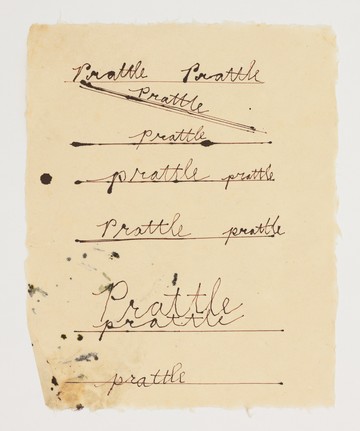 Prattle Prattle
Prattle
prattle
prattle prattle
Prattle prattle
Prattle
prattle
prattle